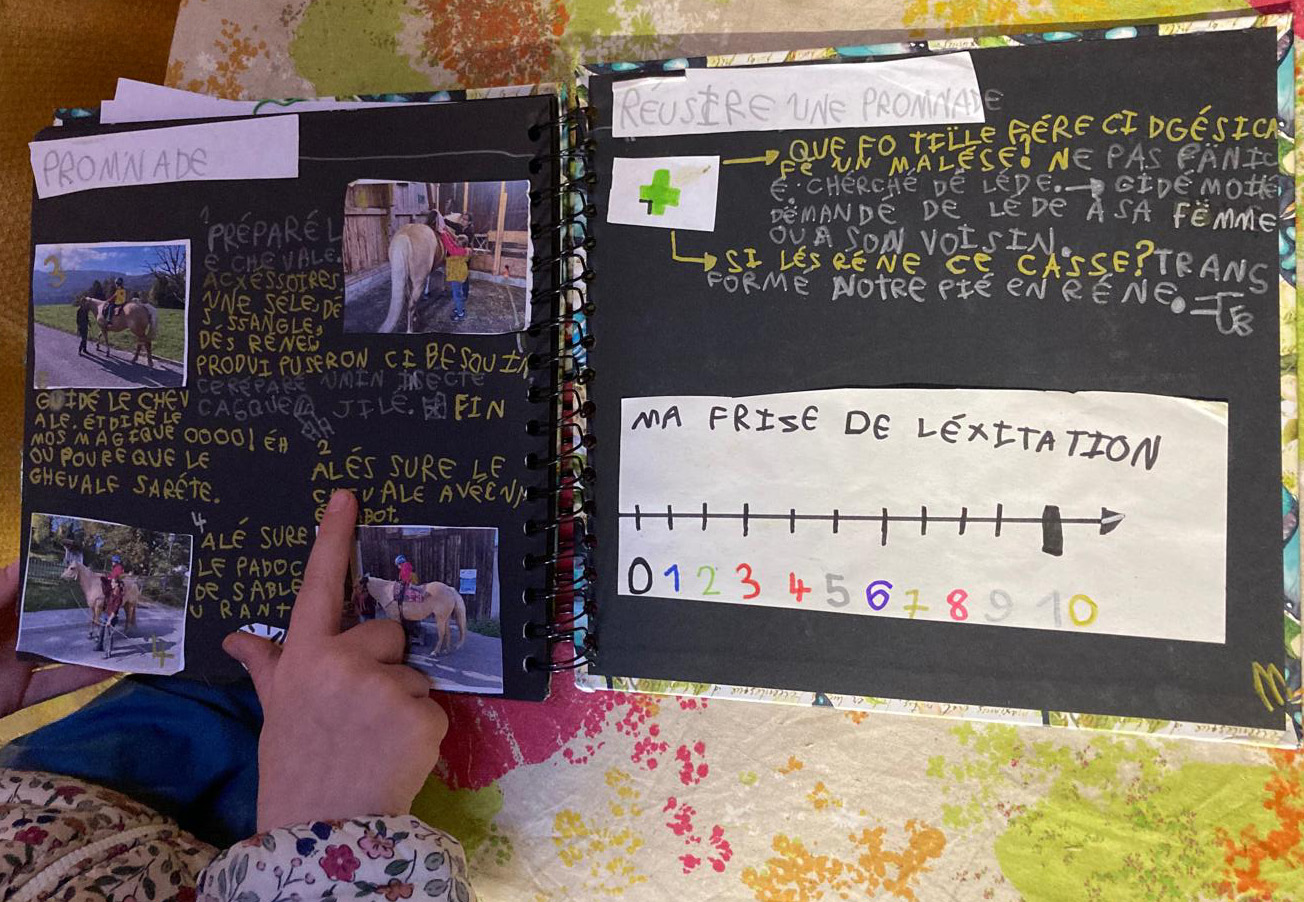 PROMNADE
1
PRÉPARÉ L
E CHEVALE.
ACXÉSSOIRES
UNE SÉLE, DÉ
S SSANGLE,
DÉS RÉNES
PRODUI PUSERON CI BESOUIN
CERÉPARE UMIN INSECTE
CAGQUE JILÉ. FIN
AH
3
GUIDÉ LE CHEV
ALE. ÉTDIRE LE
MOS MAGIQUE OOOO! ÉH
OU POURE QUE LE
CHEVALE SARÉTE.
2
ALÉS SURE LE
CHEVALE AVÉC
BOT.
4
ALÉ SURE
LE PADOC
DE SABLE
U RANT
4
RÉUSIRE UNE PROMNADE
QUE FO TILLE FÉRE CI DGÉSICA
FÉ UN MALÉSE? NE PAS PÄNIC
É. CHERCHÉ DE LÉDE. → GIDÉ MOTÉ
DEMANDÉ DE LÉDE A SA FËMME
OU A SON VOISIN.
SI LÉS RÉNE CE CASSE? TRANS
FORMÉ NOTRE PIÉ EN RÉNE.
MA FRISE DE LÉXITATION
0 1 2 3 4 5 6 7 8 9 10
M